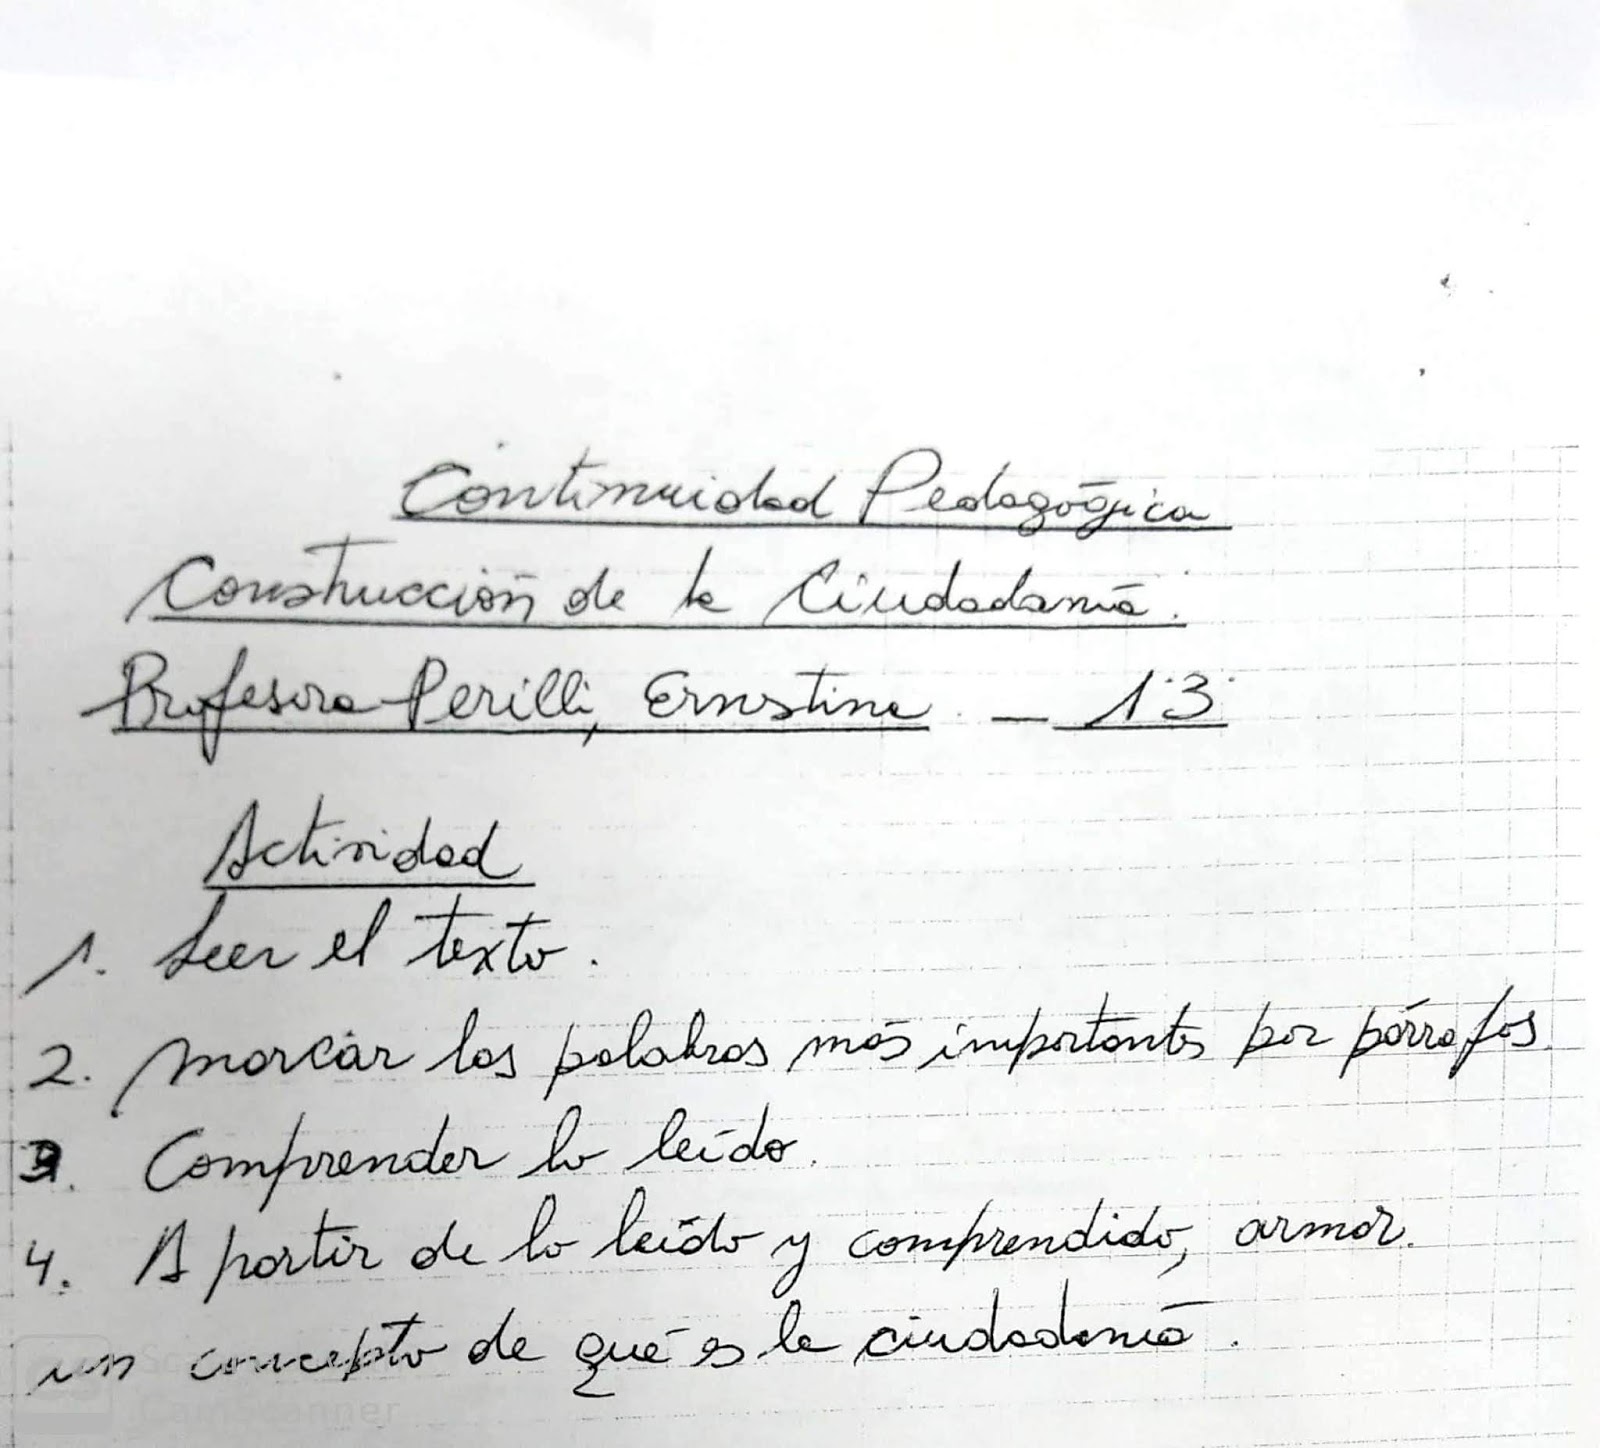 Continuidad Pedagógica
Construcción de la Ciudadanía.
Profesora Perilli, Ernestina. - 1°3°
Actividad
1. Leer el texto.
2. Marcar las palabras más importantes por párrafos.
3. Comprender lo leído.
4. A partir de lo leído y comprendido, armar.
un concepto de qué es la ciudadanía.
CamScanner